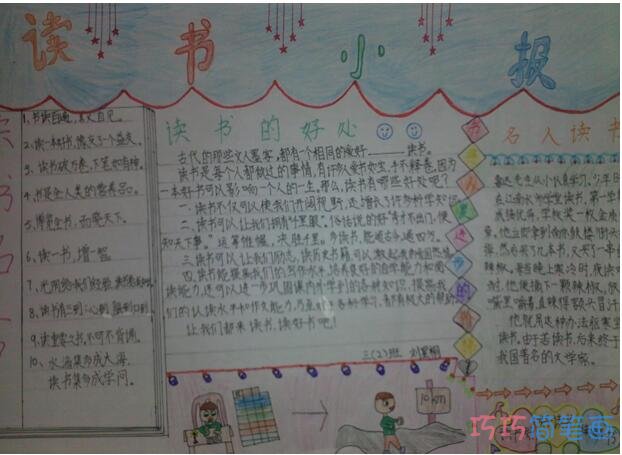 读书小报
读书名言
1、书读百遍，其义自见。
2、读一本好书，像交了一个益友。
3、读书破万卷，下笔如有神。
4、书是全人类的营养品。
5、博览全书，而晓天下。
6、读一书，增一智
8、读书有三到：心到，眼到，口到。
9、读重要之书，不可不背诵。
10、水滴集多成大海，
读书集多成学问。
读书的好处
古代的那些文人墨客，都有个相同的爱好————读书。
读书是每个人都做过的事情，有许多人爱书如宝，手不释卷，因为
一本好书可以影响一个人的一生。那么，读书有哪些好处呢？
一、读书不仅可以使我们开阔视野，还增长了许多科学知识
二、读书可以让我们拥有“千里眼”。俗话说的好“秀才不出门，便
知天下事”。运筹帷幄，决胜千里。多读书，能通古今通四方。
三、读书可以让我们励志，
四、读书能提高我们的写作水平，培养良好的自学能力和阅
读能力，还可以进一步巩固课内外学到的各种知识，提高我
们的认读水平和作文能力，乃至对于各种学科，都有极大的帮助
让我们都来读书，读好书吧！
三（2）班
书是人类进步的阶梯！
名人读书
鲁迅先生从小认真学习。少年时
，在江南水师学堂读书，第一学
成绩优异，学校奖一枚金质
，然后买了几本书，又买了一串红
辣椒。每当晚上寒冷时，夜读
时，他便摘下一颗辣椒，放
嘴里嚼着，直辣得额头冒汗
他就用这种办法驱寒坚
读书。由于苦读书，后来终于
我国著名的文学家。
10km
巧巧简笔画